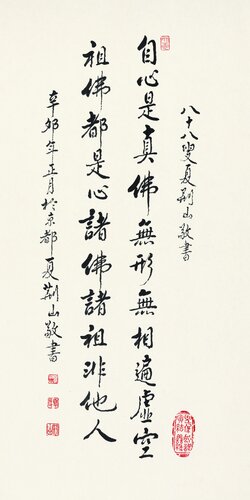 八十八叟夏荆山敬書
自心是真佛無形無相遍虛空
祖佛都是心諸佛諸祖非他人
辛卯年正月於京都夏荆山敬書